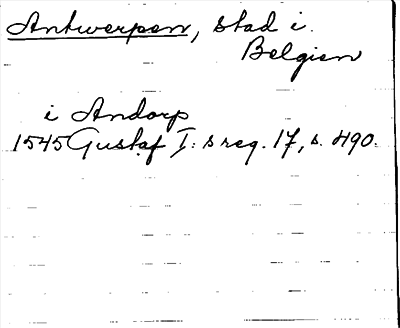 Antwerpen, stad i.
Belgien
i Andorp
1545 Gustaf I: s reg. 17, s. 490.